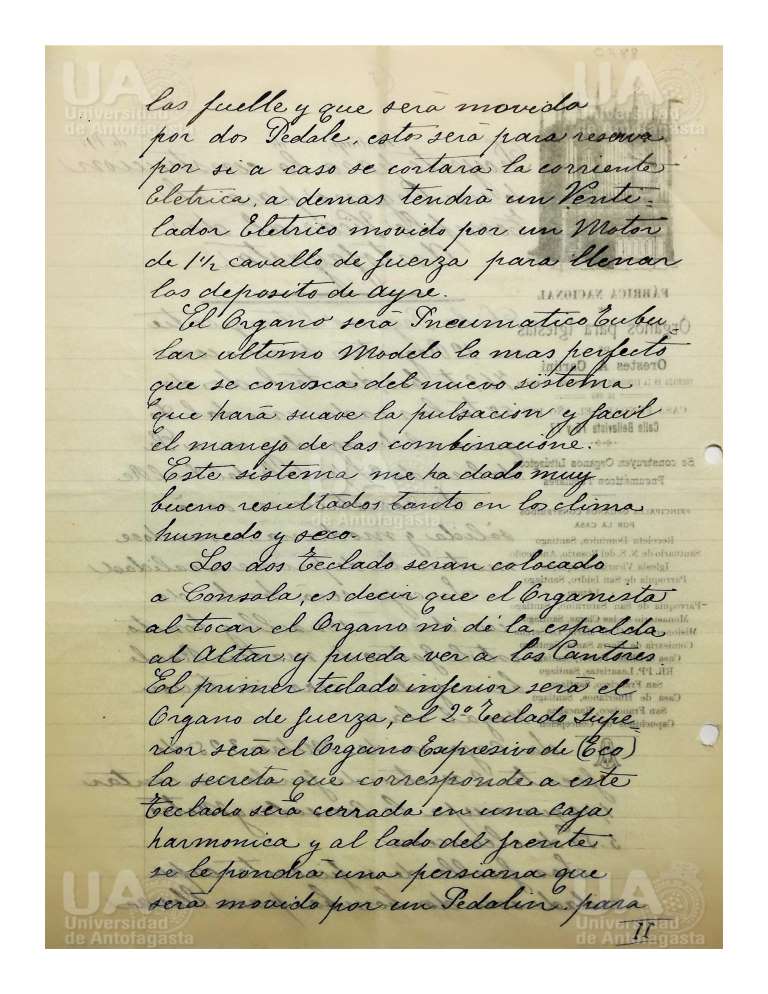 las fuelle y que será movida
por dos Pedale, estos será para reserva
por si a caso se cortará la corriente
Eletrica, a demas tendrá un Venti-
lador Eletrico movido por un Motor
de 1 1/2 cavallo de fuerza para llenar
los deposito de ayre.
El Organo será Pneumatico Tubu-
lar ultimo Modelo lo mas perfecto
que se conosca del nuevo sistema
que hará suave la pulsacion y facil
el manejo de las combinacione.
Este sistema me ha dado muy
bueno resultados tanto en los clima
humedo y seco.
Los dos Teclado seran colocado
a Consola, es decir que el Organista
al tocar el Organo nó dé la espalda
al Altar y pueda ver a los Cantores.
El primer teclado inferior será el
Organo de fuerza, el 2º Teclado Supe-
rior será el Organo Expresivo de (Eco)
la secreta que corresponde a este
Teclado será cerrada en una caja
harmonica y al lado del frente
se le pondrá una persiana que
será movido por un Pedalin para
II
UA
Universidad
de Antofagasta
UA
Universidad
de Antofagasta
de Antofagasta
UA
Universidad
de Antofagasta
UA
Universidad
de Antofagasta
FÁBRICA NACIONAL
Organos para Iglesias
Orestes A. Carlini
Calle Bellavista
Se construyen Organos
Pneumáticos
POR LA CASA
Recoleta Dominica, Santiago
Parroquia de San Isidro, Santiago